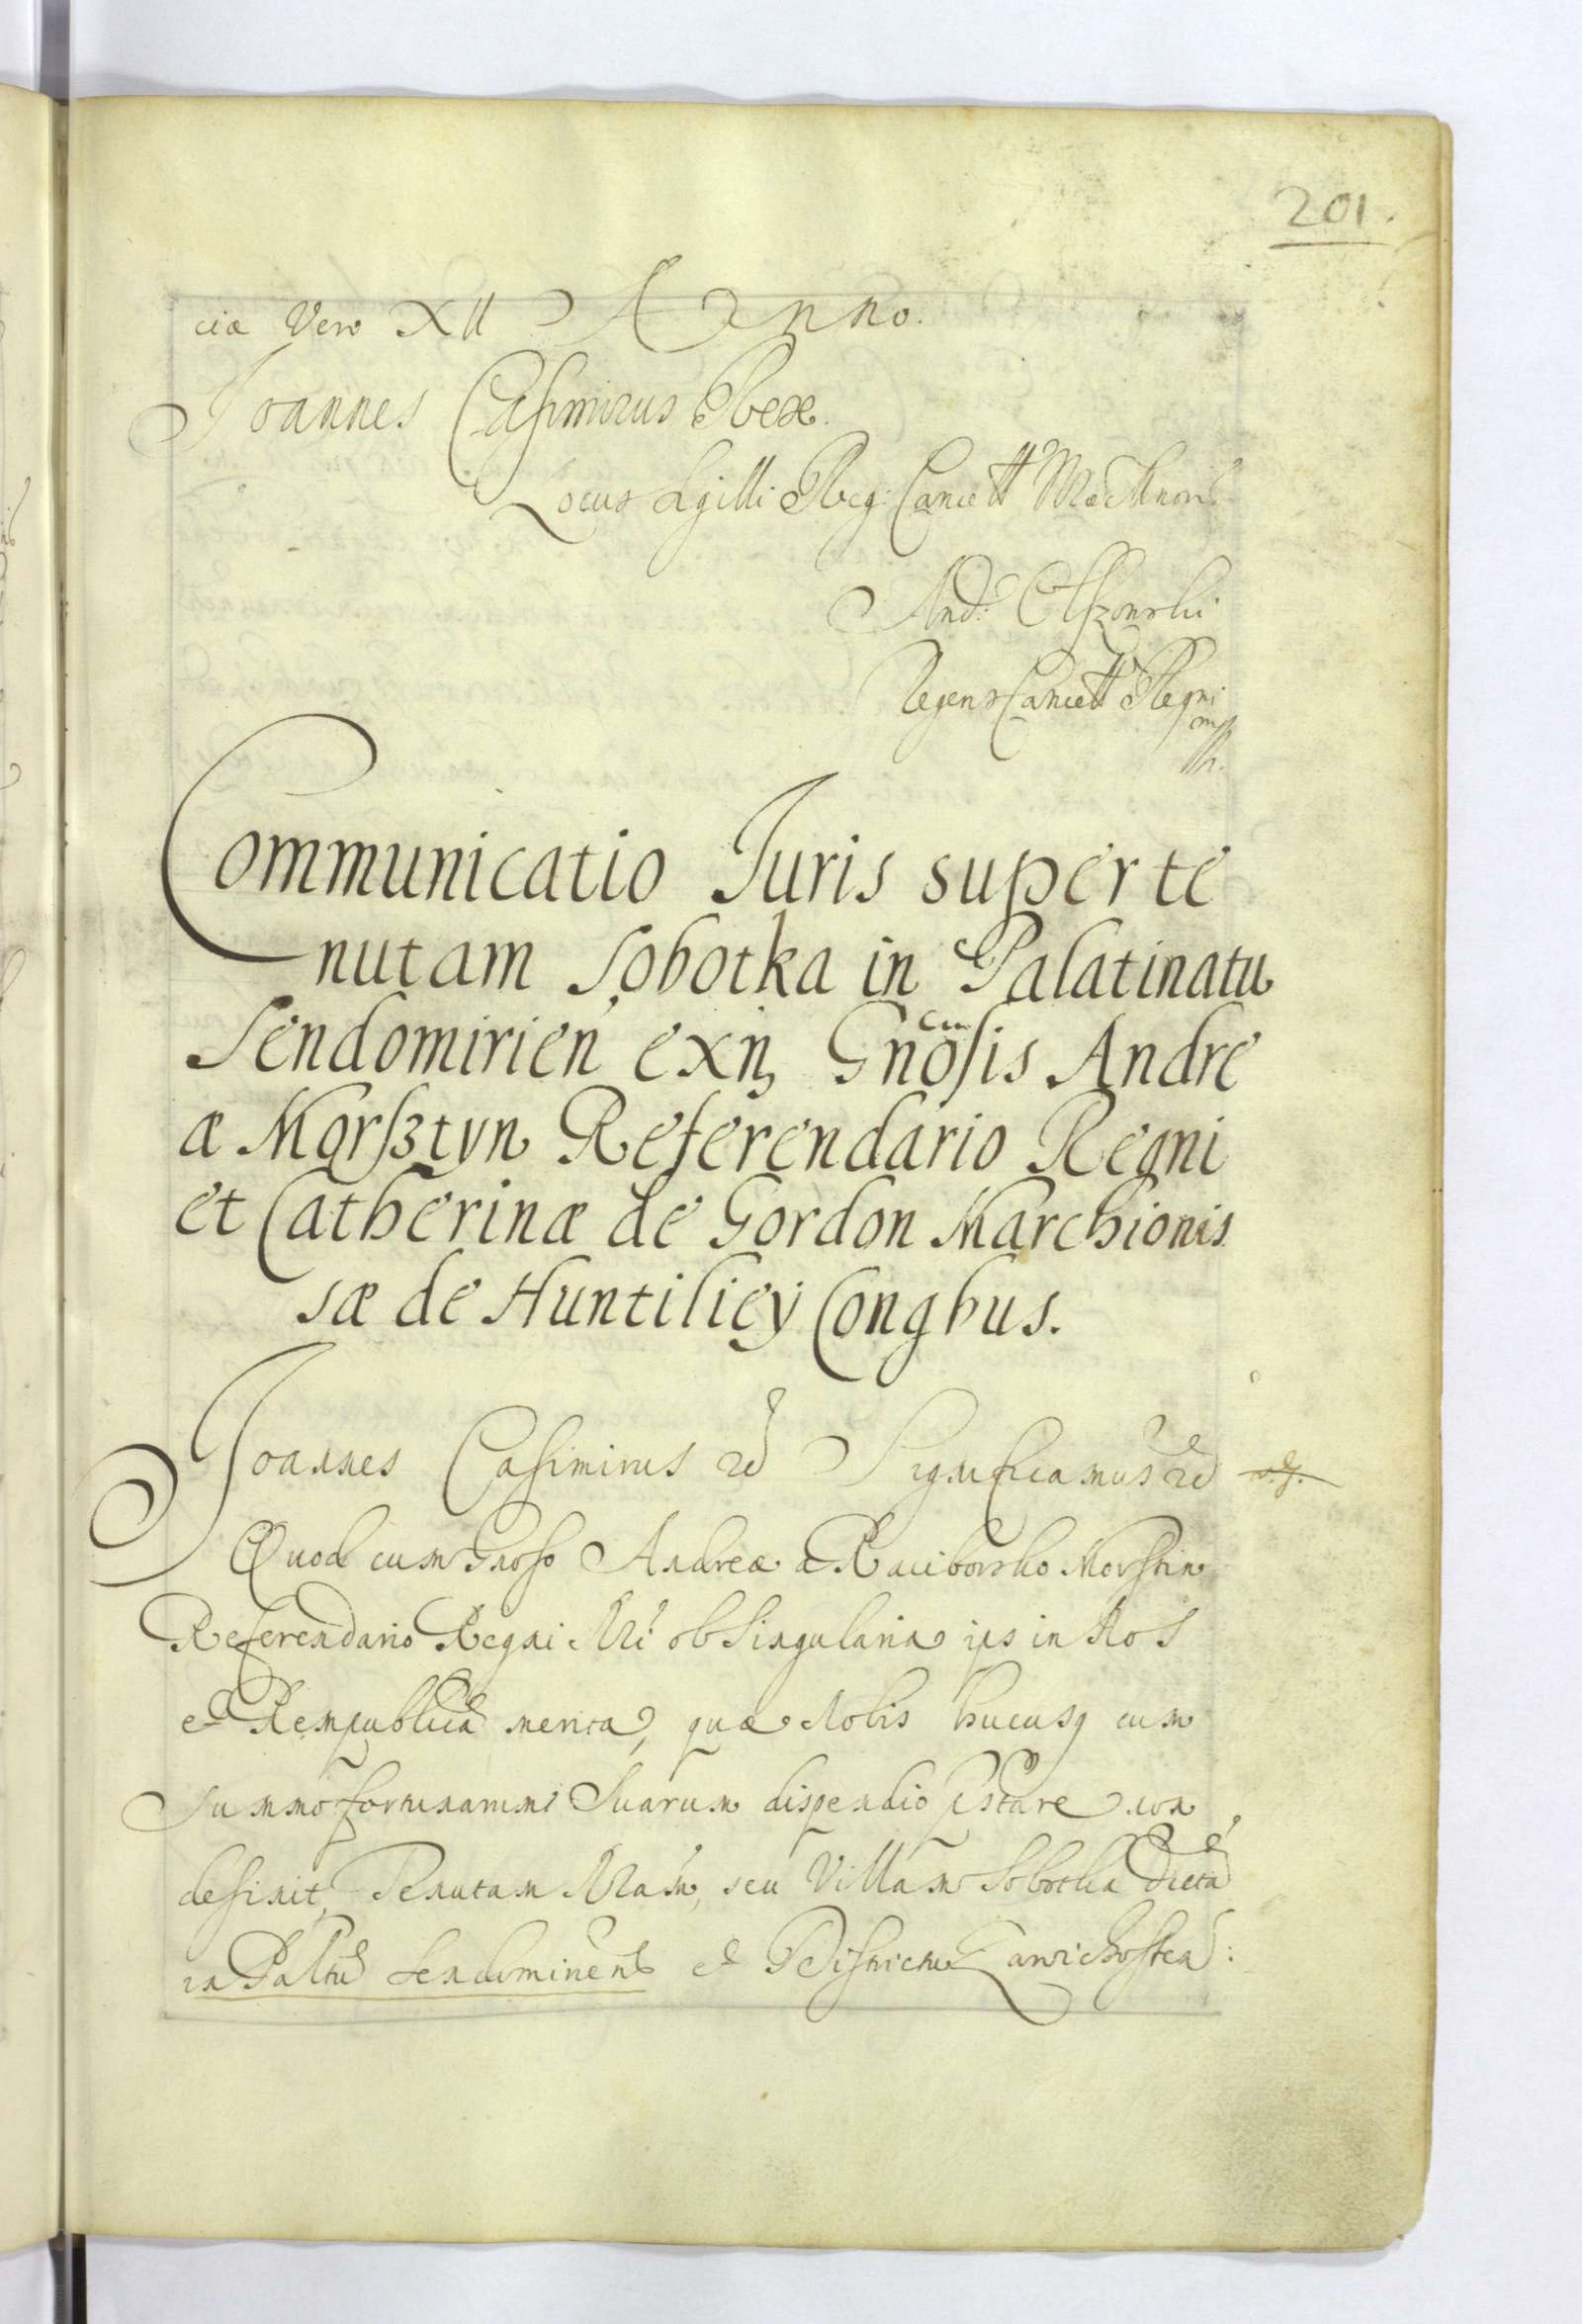 201.
ciæ Vero XII Anno.
Joannes Casimirus Rex.
Locus Sigilli Reg: Cancell
And: Olszowski
Regens Cancell Regni
mp
Communicatio Juris super te
nutam Sobotka in Palatinatu
Sendomirien exñ, cum Gnosis Andre
æ Morsztyn Referendario Regni
et Catherinæ de Gordon Marchionis
sæ de Huntiliey Congbus.
Joannes Casimirus Significamus
Quod cum Gnoso Andreæ a Raciborsko Morstin
Referendario Regni Nri ob singularia ips in Nos
et Rempublicã merita, quæ Nobis hucusq cum
summo fortunarum suarum dispendio pstare non
desinit, Tenutam Nram, seu Villam Sobotka dictã
in Paltu Sendomirien et Districtu Zawichosten: